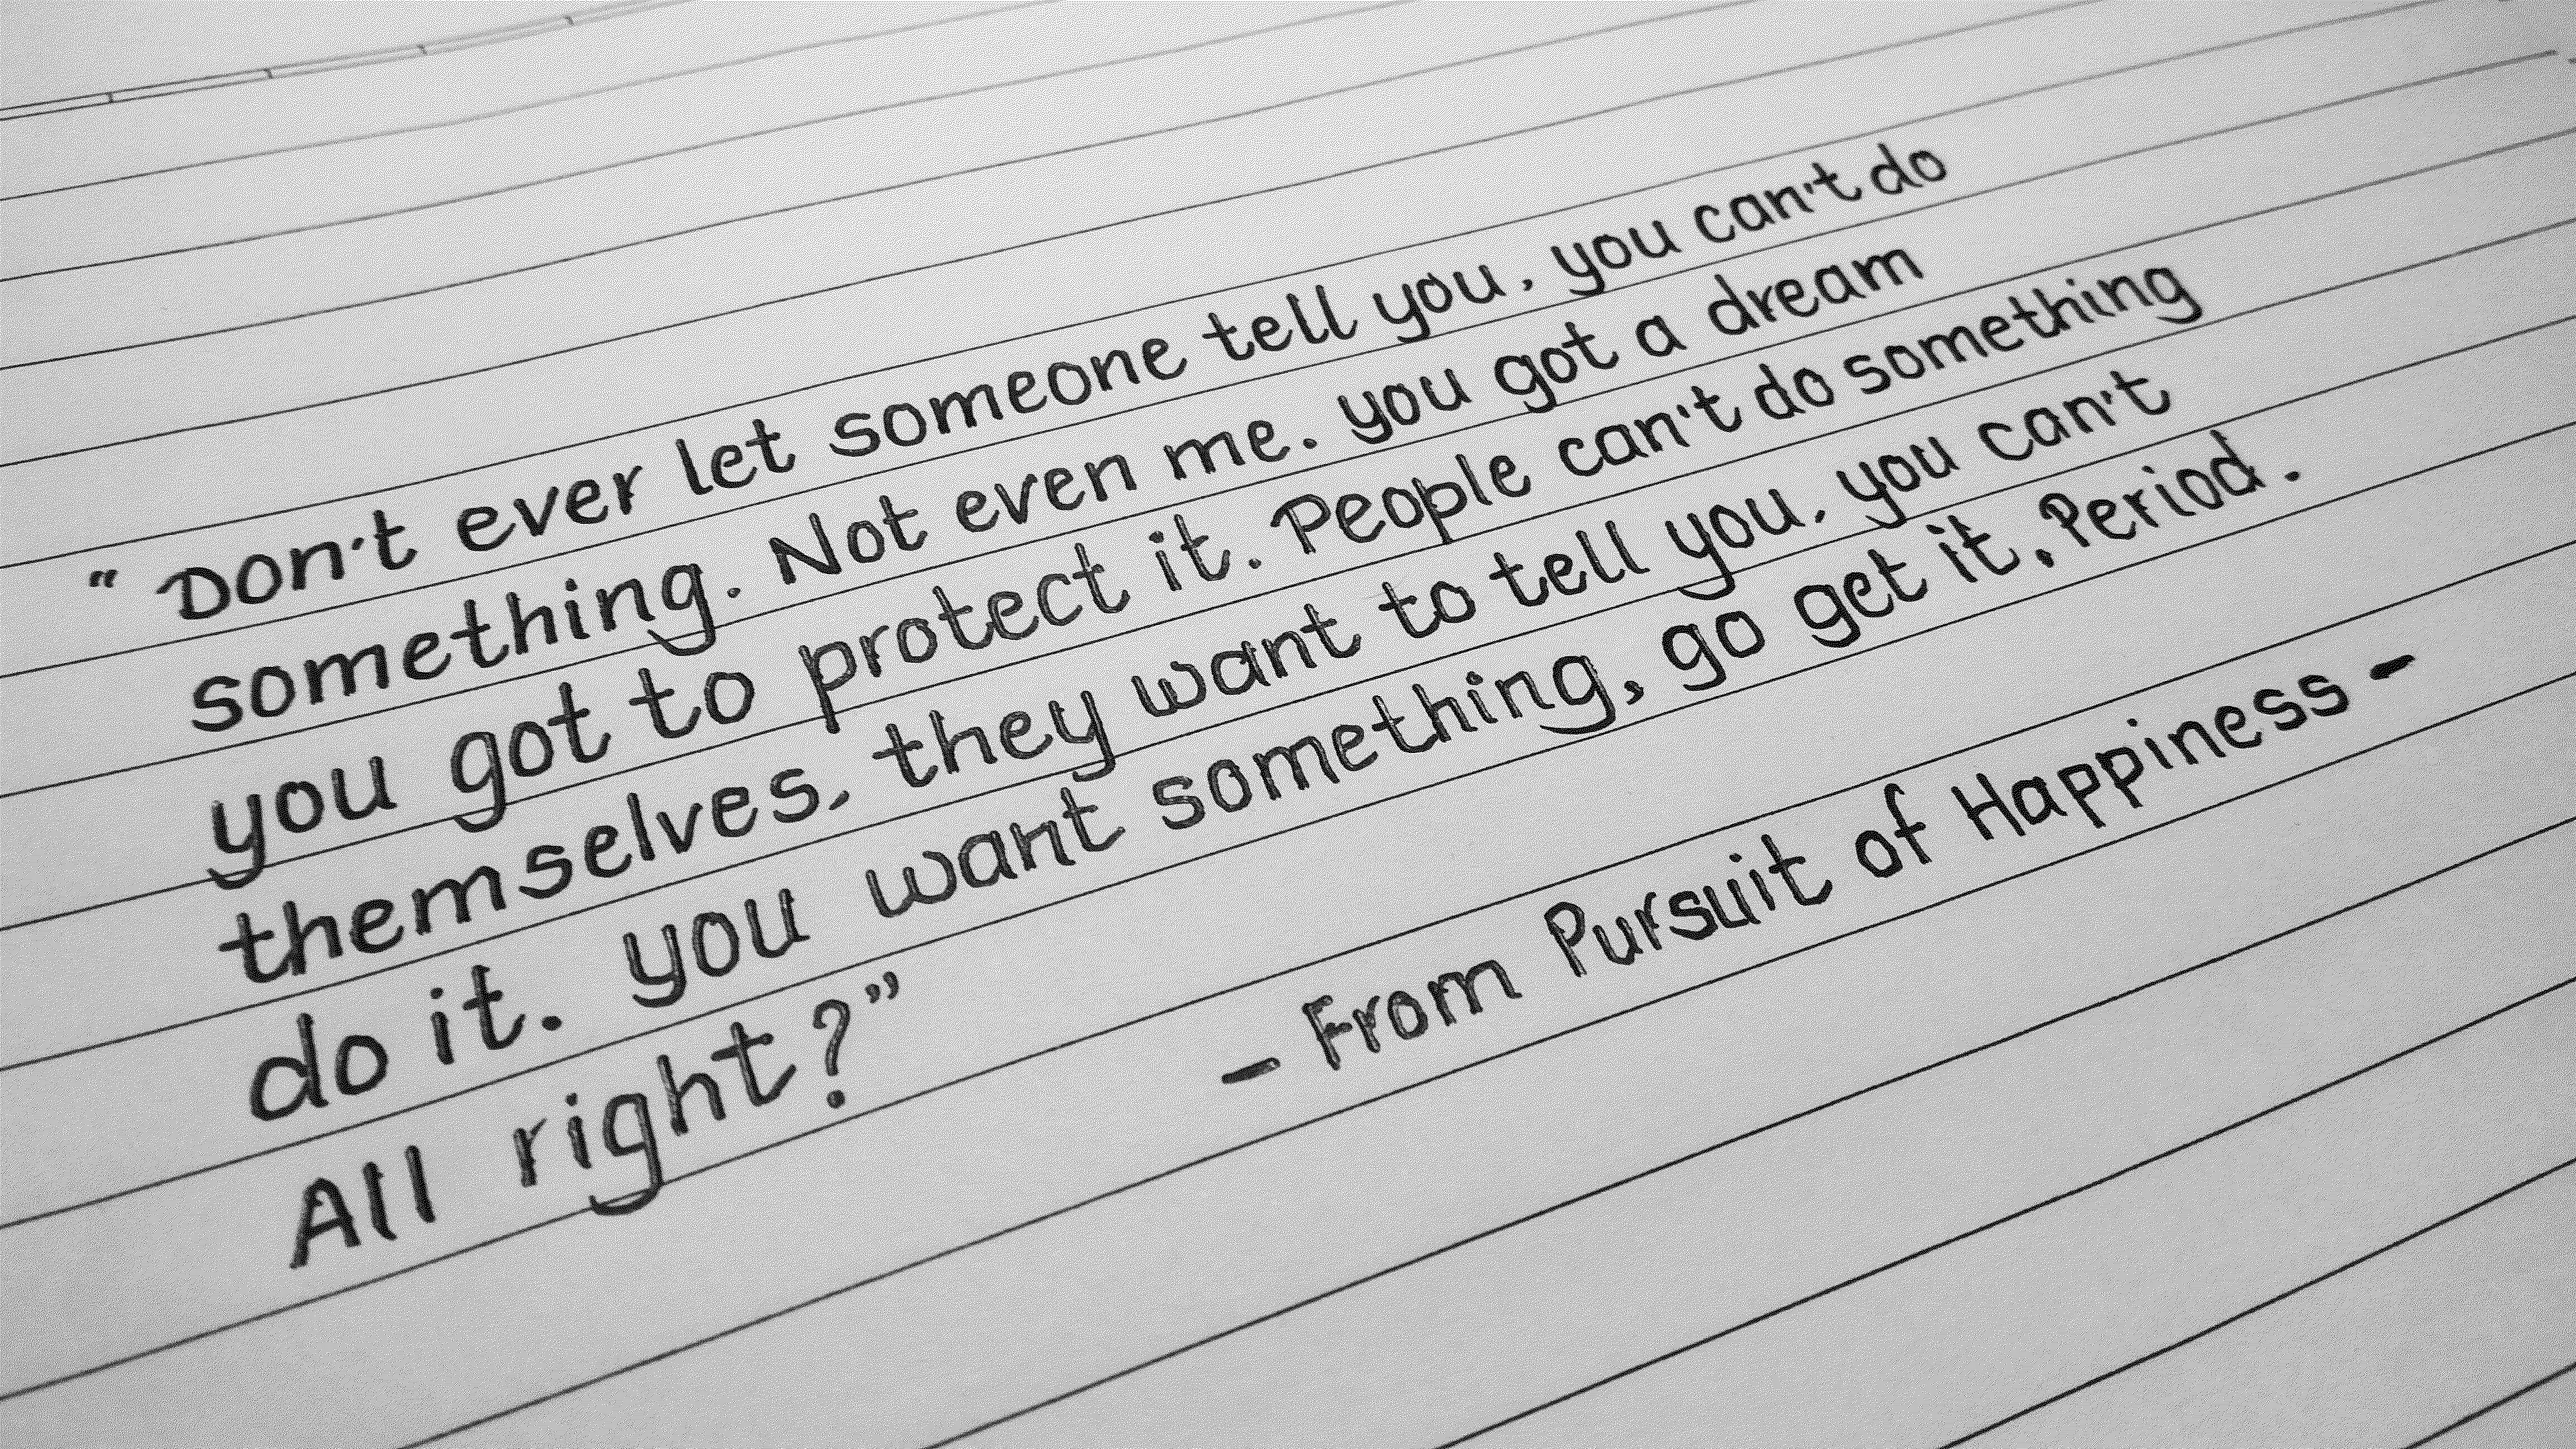 “Don't ever let someone tell you, you can't do
something. Not even me. you got a dream
you got to protect it. People can't do something
themselves, they want to tell you, you can't
do it. you want something, go get it, Period.
All right?”
- From Pursuit of Happiness -